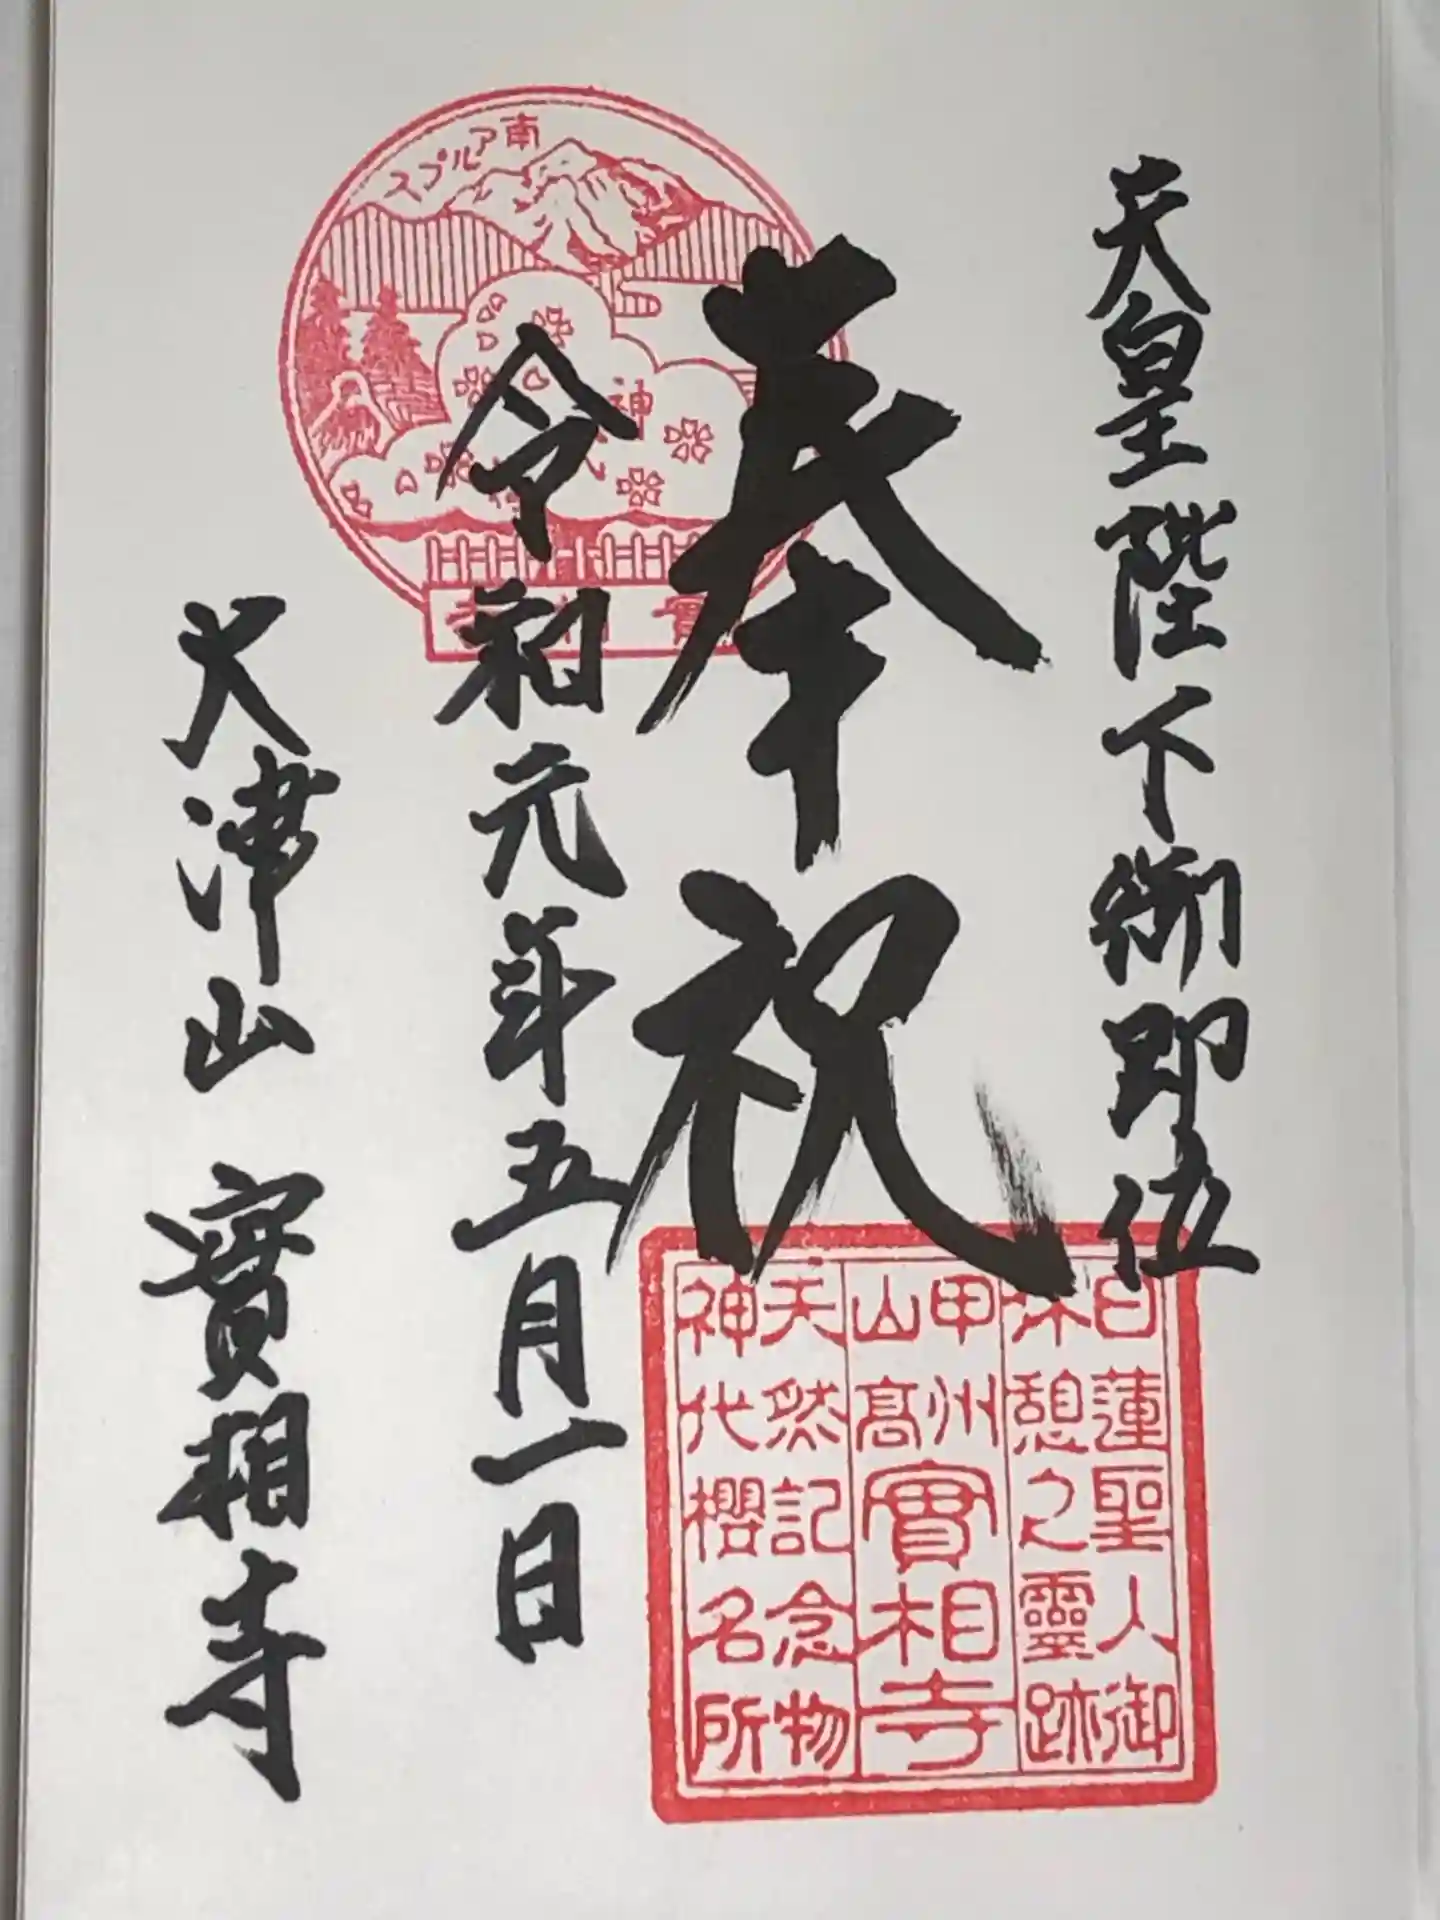 天皇陛下御即位
奉祝
令和元年五月一日
大津山 實相寺
南アルプス
神代
實相寺
日蓮聖人御
休憩之靈跡
甲州
山高
實相寺
天然記念物
神代櫻名所